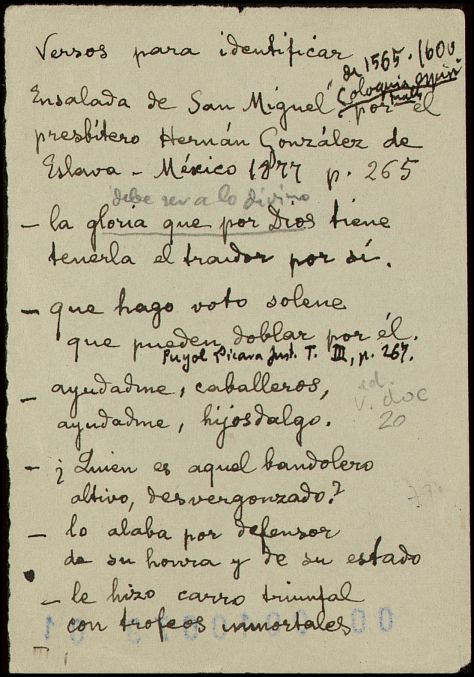 Versos para identificar
de 1565-1600
Ensalada de San Miguel" por el
presbítero Hernán González de
Eslava - México 1877 p. 265
debe ser a lo divino
- la gloria que por Dios tiene
tenerla el traidor por sí.
- que hago voto solene
que pueden doblar por él.
Puyol Picara Just. T. III, p. 267.
- ayudadme, caballeros,
ayudadme, hijosdalgo.
ed.
V. doc
20
- ¿Quien es aquel bandolero
altivo, desvergonzado?
- lo alaba por defensor
de su honra y de su estado
- le hizo carro triunfal
con trofeos inmortales